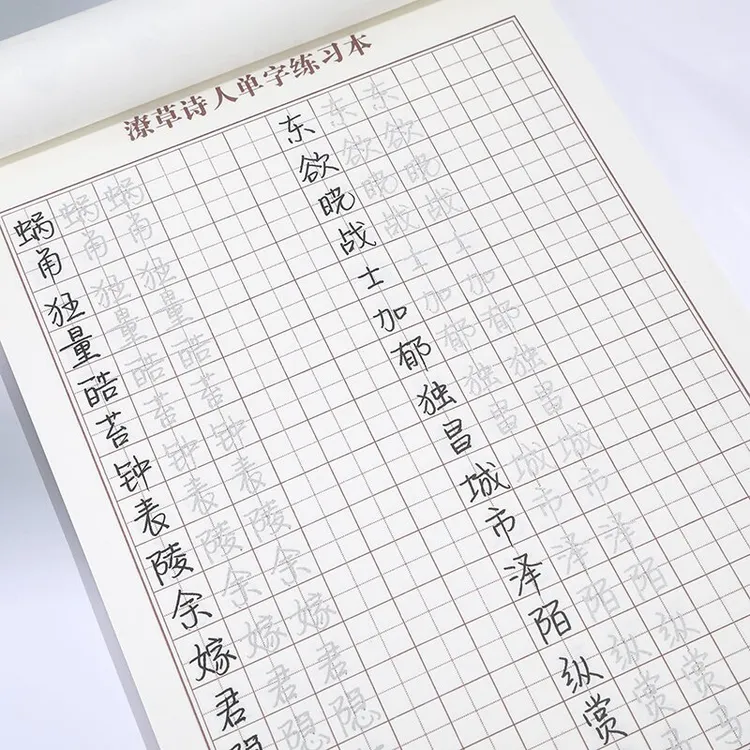 潦草诗人单字练习本
蜗 蜗 蜗 东 东 东
角 角 角 欲 欲 欲
狂 狂 狂 晓 晓 晓
量 量 量 战 战 战
皓 皓 皓 士 士 士
苔 苔 苔 加 加 加
钟 钟 钟 郁 郁 郁
表 表 表 独 独 独
陵 陵 陵 昌 昌 昌
余 余 余 城 城 城
嫁 嫁 嫁 市 市 市
君 君 君 泽 泽 泽
隐 隐 隐 陌 陌 陌
纵 纵 纵
赏 赏 赏
马 马